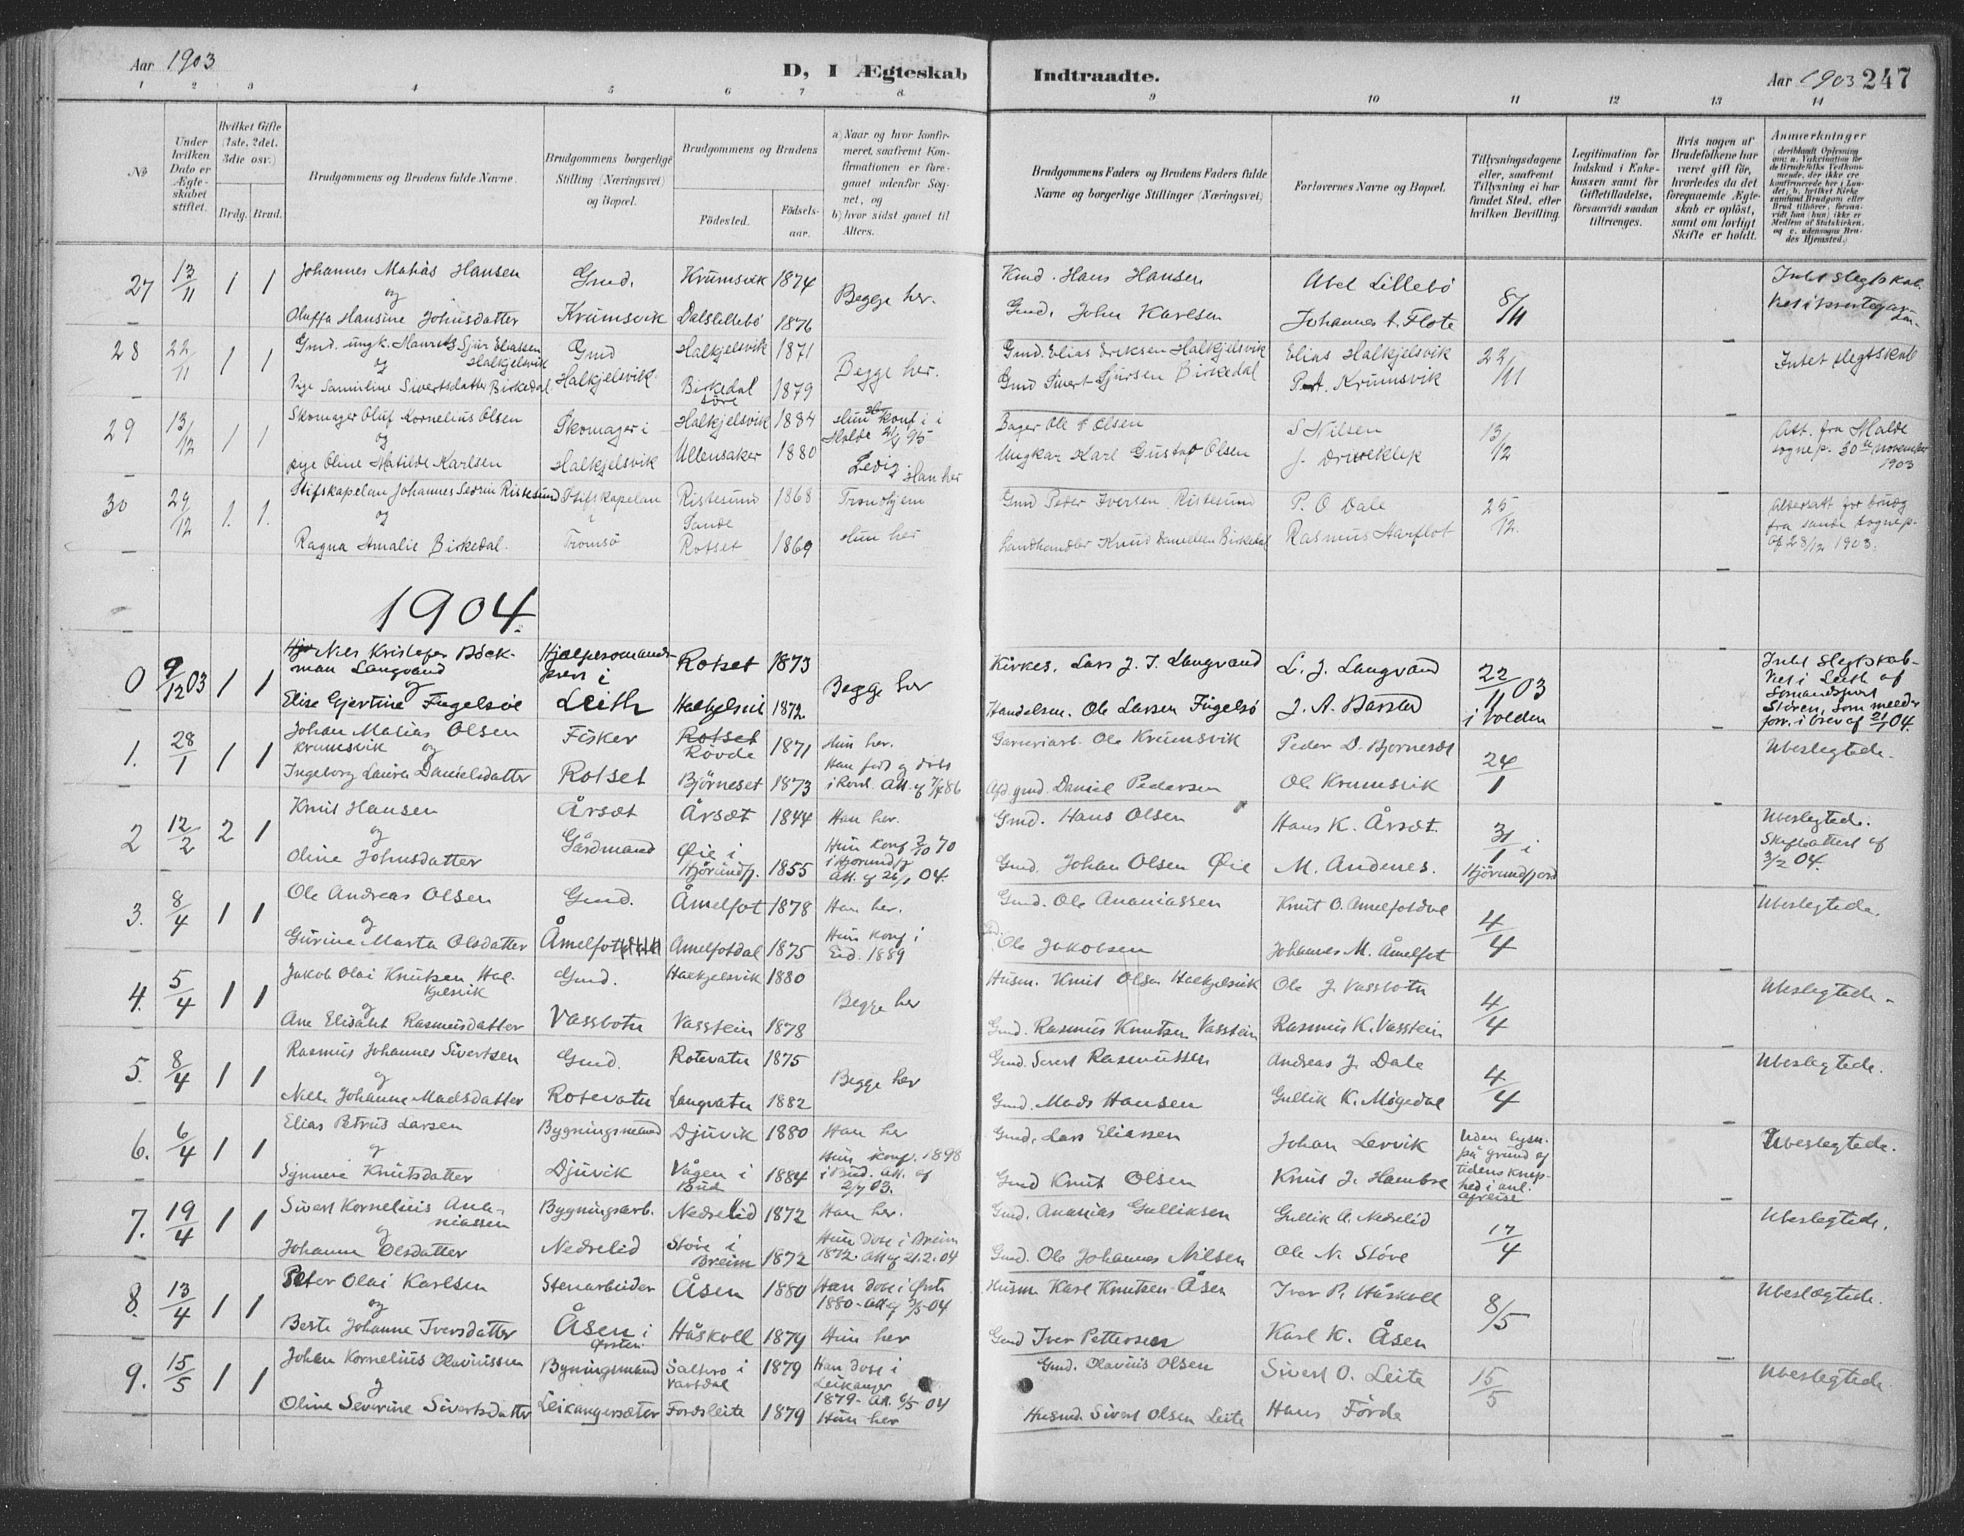 Aar 1903
D, I Ægteskab Indtraadte.
Aar 1903 247
1 2 3 4 5 6 7 8 9 10 11 12 13 14
No
Under hvilken Dato er Ægteskabet stiftet.
Hvilket Gifte (1ste, 2det, 3die osv.)
Brdg. Brud.
Brudgommens og Brudens fulde Navne.
Brudgommens borgerlige Stilling (Næringsvei) og Bopæl.
Brudgommens og Brudens
Fødested.
Fødselsaar.
a) Naar og hvor konfirmeret, saafremt Konfirmationen er foregaaet udenfor Sognet, og
b) hvor sidst gaaet til Alters.
Brudgommens Faders og Brudens Faders fulde Navne og borgerlige Stillinger (Næringsvei)
Forlovernes Navne og Bopæl.
Tillysningsdagene eller, saafremt Tillysning ei har fundet Sted, efter hvilken Bevilling.
Legitimation for Indskud i Enkekassen samt for Giftetilladelse, forsaavidt saadan tiltrænges.
Hvis nogen af Brudefolkene har været gift før, hvorledes da det foregaaende Ægteskab er opløst, samt om lovligt Skifte er holdt.
Anmærkninger
27 13/11 1 1 Johannes Matias Hansen Gmd. Krumsvik 1874 Begge her. Kmd. Hans Hansen Abel Lillebø 8/11 Intet slegtskab.
og
Oluffa Hansine Johnsdatter Krumsvik Dalslillebø 1876 Gmd. John Karlsen Johannes A. Flote
28 22/11 1 1 Gmd. ungk. Maurits Sjur Eliassen Halkjelsvik Gmd Halkjelsvik 1871 Begge her. Gmd. Elias Eriksen Halkjelsvik Elias Halkjelsvik 22/11 Intet slegtskab
og
Pige Samueline Sivertsdatter Birkedal Halkjelsvik Birkedal 1879 Gmd Sivert Sjursen Birkedal P. A. Krumsvik
29 13/12 1 1 Skomager Oluf Kornelius Olsen Skomager i Halkjelsvik 1884 Bager Ole Olsen S Nilsen 13/12 Att. fra Halde sognep. 30te november 1903
og
pige Oline Matilde Karlsen Halkjelsvik Ullensaker 1880 Ungkar Karl Gustaf Olsen
Han her
30 29/12 1. 1. Stifskapelan Johannes Severin Ristesund Stifskapelan i Ristesund Sande 1868 Trondhjem Gmd Peder Iversen Ristesund P. O Dale 25/12 fra sande sognep. af 28/12 1903.
og
Ragna Amalie Birkedal. Tromsø Rotset 1869 Hun her Landhandler Knud Danielsen Birkedal Rasmus Aarflot
1904.
0 9/12 03 1 1 Nils Kristofer Böckman Langvand Hjælpesømandspræst i Rotset 1873 Begge her Kirkes. Lars J. J. Langvand L. J. Langvand 22/11 03 i Volden Intet slegtskab. Viet i Leith af Sømandsprest Støren, som melder forr. i brev af 21/1 04.
og
Elise Gjertine Fingelsøe Leith Halkjelsvik 1872 Handelsm. Ole Larsen Fingelsø J. A. Barstad
1. 28/1 1 1 Johan Matias Olsen Krumsvik Fisker Rotset Røvde 1871 Hun her. Garveriarb. Ole Krumsvik Peder D. Bjørneset 24/1 Ubeslegtede.
og
Ingeborg Laurea Danielsdatter Rotset Bjørneset 1873 Afd gmd. Daniel Pedersen Ole Krumsvik
2 12/2 2 1 Knut Hansen Årsæt Årsæt 1844 Han her. Gmd. Hans Olsen Hans K. Årsæt. 31/1 i Hjørundfjord Ubeslegtede. Skifteattest af 3/2 04.
og
Oline Johnsdatter Gårdmand Øie i Hjørundfj. 1855 Hun konf 2/10 70 i Hjørundfj. Att. af 26/1 04. Gmd. Johan Olsen Øie M. Andenes.
3. 8/4 1 1 Ole Andreas Olsen Gmd. Åmelfot 1878 Han her. Gmd. Ole Ananiassen Knut O. Åmelfotdal 4/4 Ubeslegtede.
og
Gurine Marta Olsdatter Åmelfot Åmelfotdal 1875 Hun konf i Eid. 1889 Ole Jakobsen Johannes M. Åmelfot
4. 5/4 1 1 Jakob Olai Knutsen Halkjelsvik Gmd. Halkjelsvik 1880 Begge her Husm. Knut Olsen Halkjelsvik Ole J. Vassbotn 4/4 Ubeslegtede
og
Ane Elisabet Rasmusdatter Vassbotn Vasstein 1878 Gmd. Rasmus Knutsen Vasstein Rasmus K. Vasstein
5. 8/4 1 1 Rasmus Johannes Sivertsen Gmd. Rotevatn 1875 Begge her Gmd. Sivert Rasmussen Andreas J. Dale 4/4 Ubeslegtede.
og
Nille Johanne Madsdatter Rotevatn Langvatn 1882 Gmd. Mads Hansen Gullik K. Møgedal
6. 6/4 1 1 Elias Petrus Larsen Bygningsmand Djuvik 1880 Han her Gmd. Lars Eliassen Johan Lervik Uden lysn. på grund af tidens knaphed i anl. afreise Ubeslegtede.
og
Synneve Knutsdatter Djuvik Vågen i Bud 1884 Hun konf. 1898 i Bud. att. af 2/4 03. Gmd Knut Olsen Knut J. Hambre
7. 19/4 1 1 Sivert Kornelius Ananiassen Bygningsarb. Nedrelid 1872 Han her. Gmd. Ananias Gulliksen Gullik A. Nedrelid 17/4 Ubeslegtede.
og
Johanne Olsdatter Nedrelid Støve i Breim 1872 Hun døbt i Breim 1872 att af 21.2.04 Gmd. Ole Johannes Nilsen Ole N. Støve
8. 13/4 1 1 Peter Olai Karlsen Stenarbeider Åsen 1880 Han døbt i Ørsta 1880 Husm Karl Knutsen Åsen Iver P. Håskoll 8/5 Ubeslægtede.
og
Berte Johanne Iversdatter Åsen i Ørsten Håskoll 1879 Hun her Gmd Iver Pettersen Karl K. Åsen
9. 15/5 1 1 Johan Kornelius Olaviussen Bygningsmand Saltero i Vartdal 1879 Han døbt i Leikanger 1879. Att. 6/5 04 Gmd. Olavius Olsen Sivert O. Leite 15/5 Ubeslegtede.
og
Oline Severine Sivertsdatter Leikangersæter Fordsleite 1879 Hun her Husmd. Sivert Olsen Leite Hans Førde